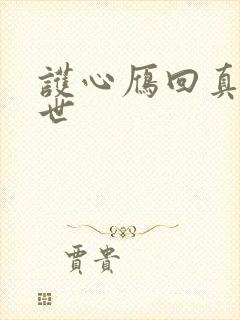 護心雁回真
世
賈貴